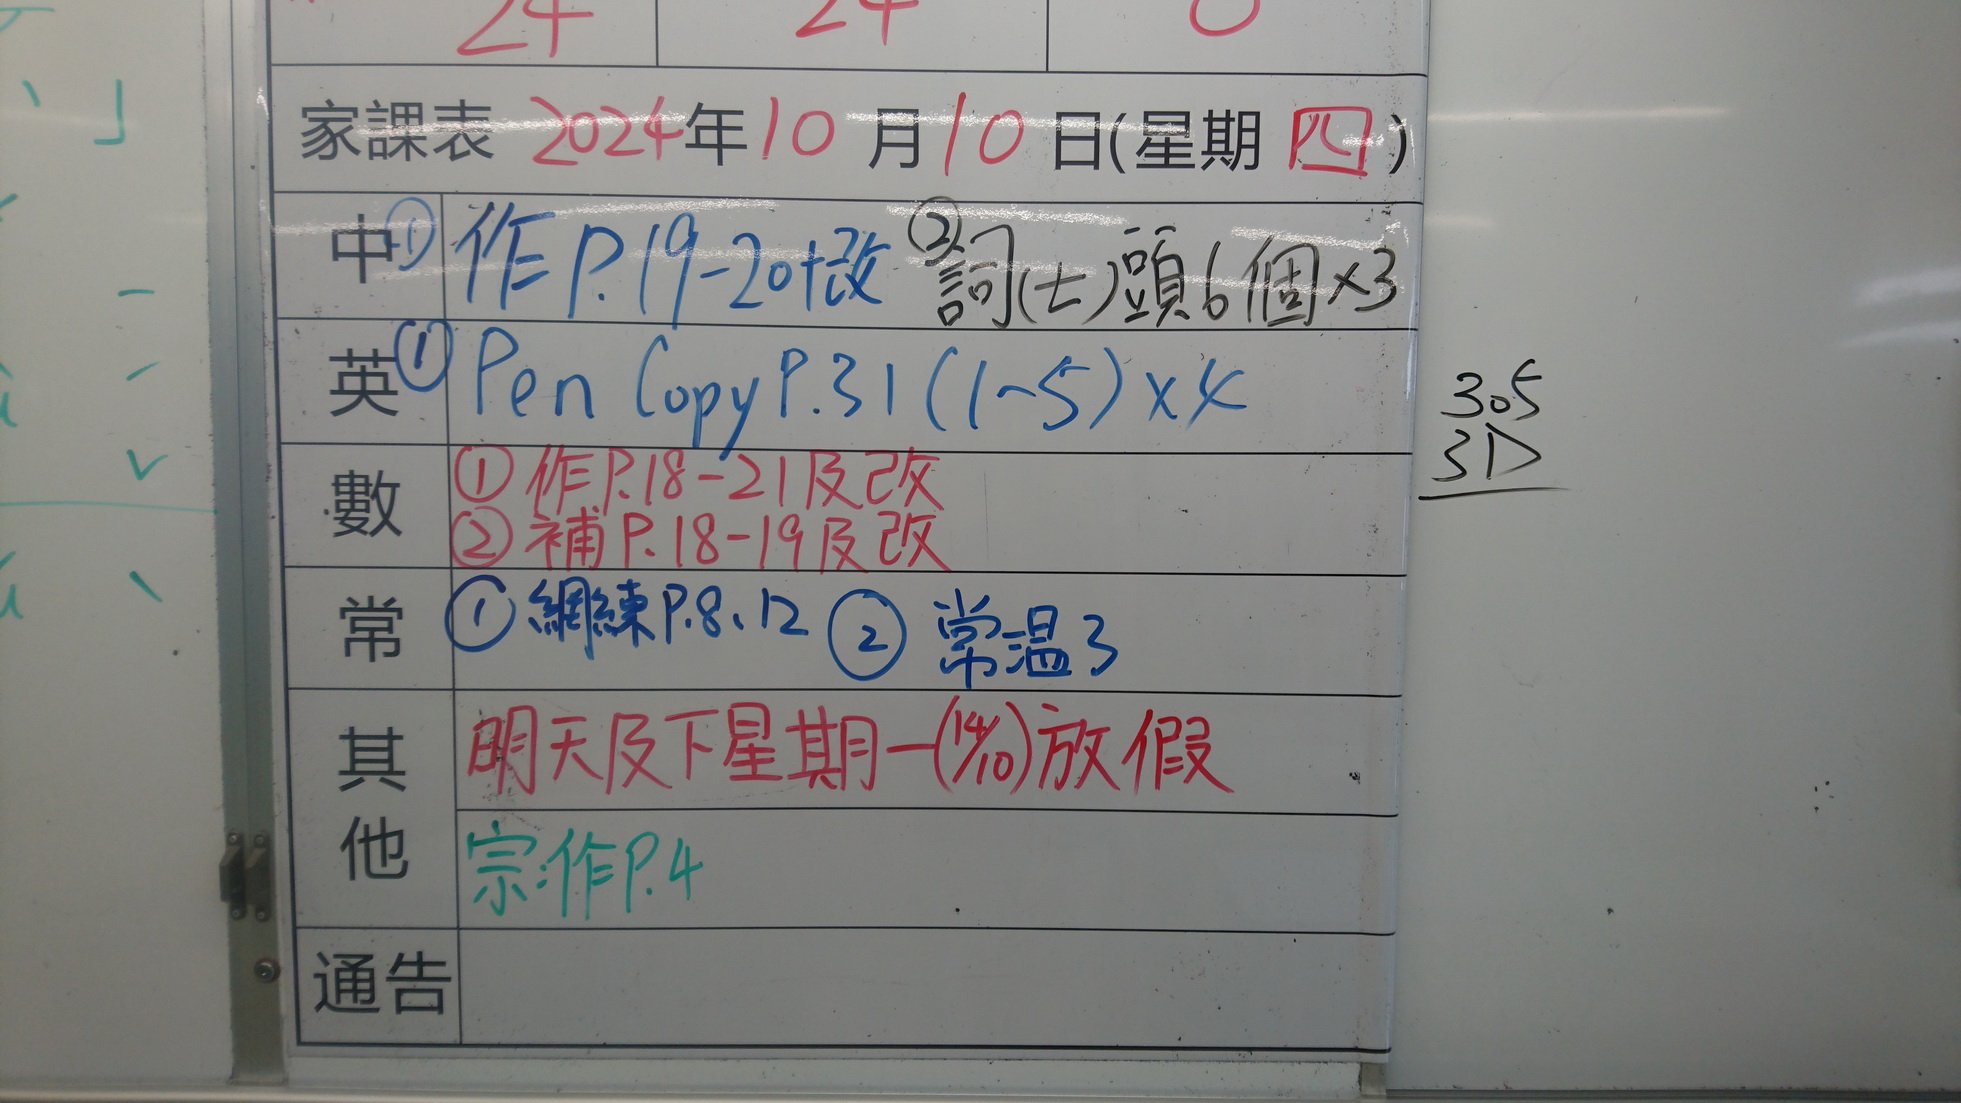 24 24 0
家課表 2024年10月10日(星期四)
中 ① 作P.19-20+改 ② 詞(七)頭6個×3
英 ① Pen Copy P.31 (1~5) × 4
305
3D
數 ① 作P.18-21及改
② 補P.18-19及改
常 ① 網練P.8、12 ② 常温3
其他 明天及下星期一(14/10)放假
宗:作P.4
通告